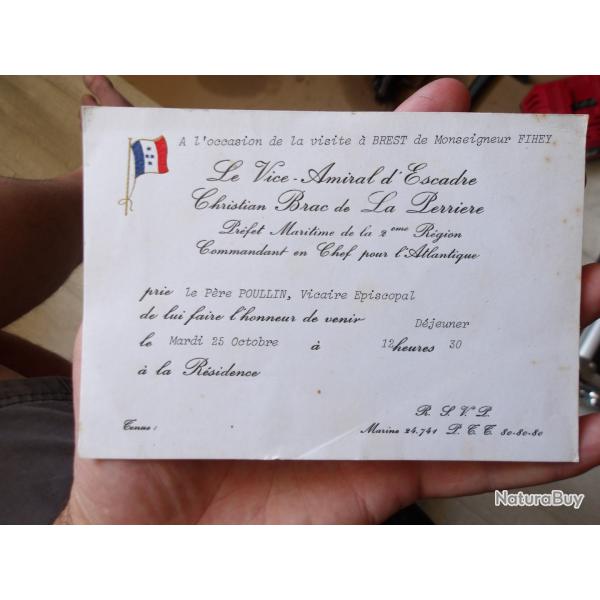 A l'occasion de la visite à BREST de Monseigneur FIHEY
Le Vice-Amiral d'Escadre
Christian Brac de La Perriere
Préfet Maritime de la 2eme Région
Commandant en Chef pour l'Atlantique
prie le Père POULLIN, Vicaire Episcopal
de lui faire l'honneur de venir Déjeuner
le Mardi 25 Octobre à 12heures 30
à la Résidence
R. S. V. P.
Tenue : Marine 24.741 P. T. T. 80-80-80
NaturaBuy